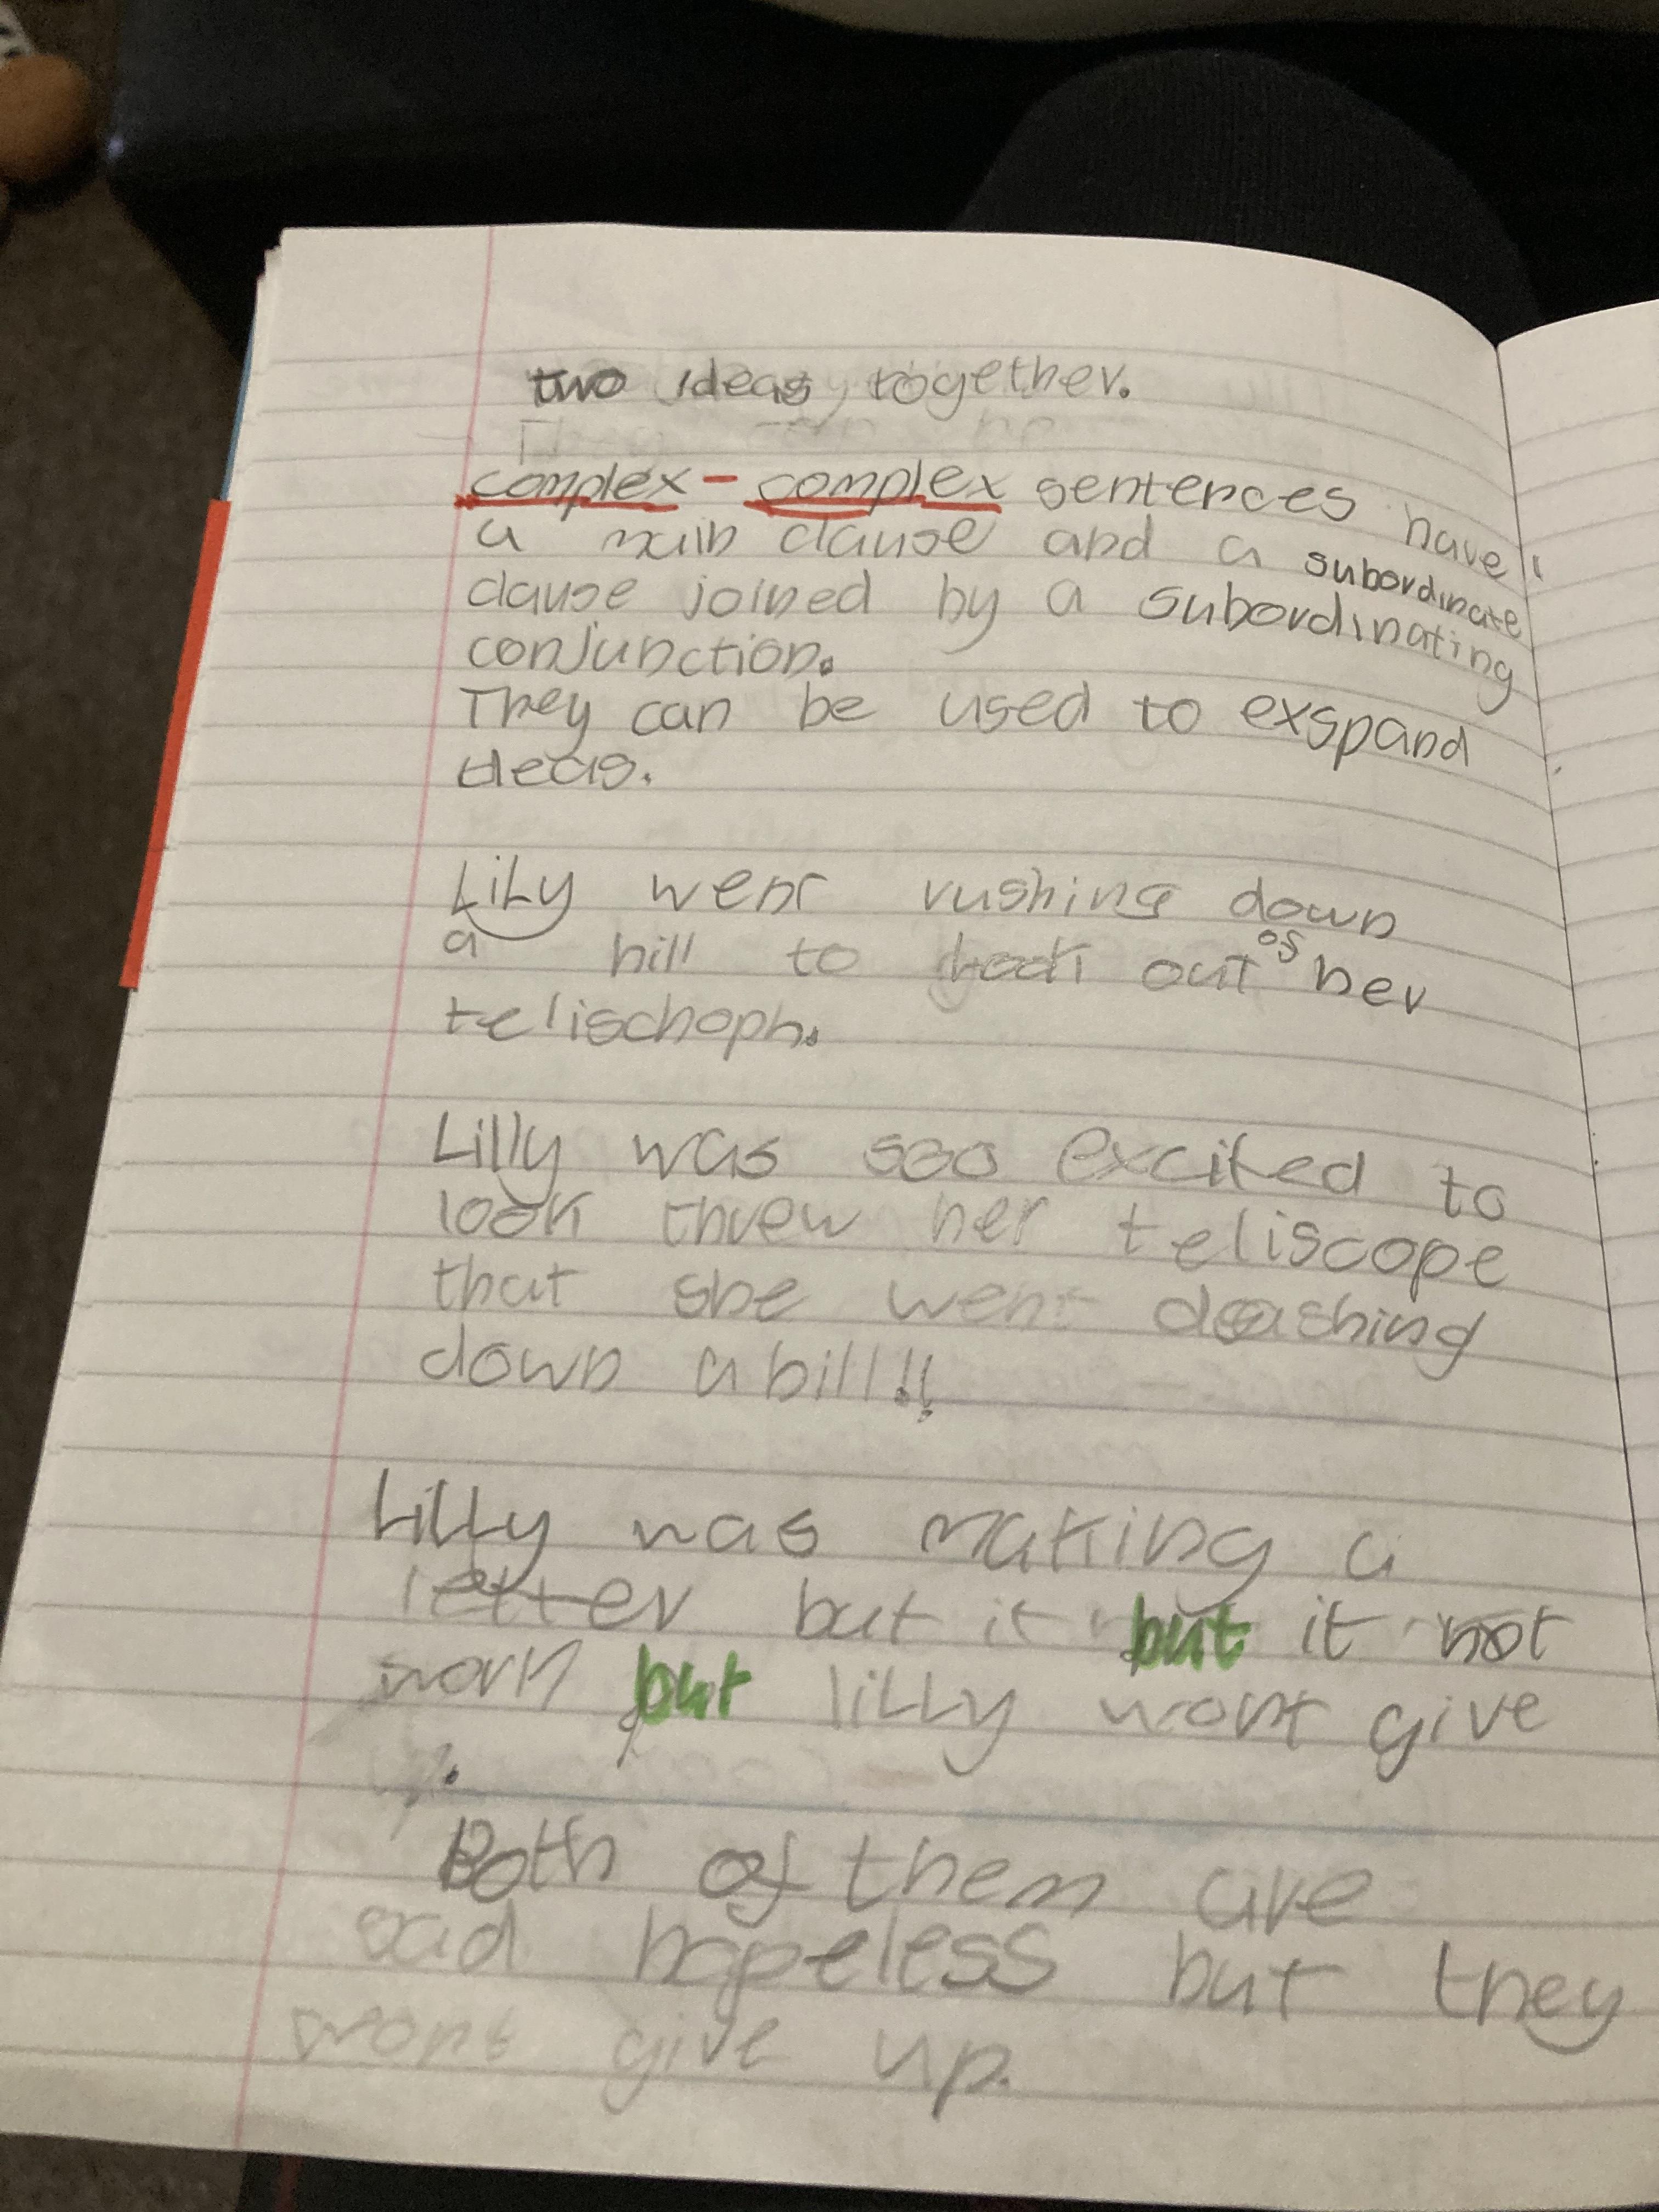 two ideas together.
They can be
complex - complex sentences have
a main clause and a subordinate
clause joined by a subordinating
conjunction.
They can be used to exspand
ideas.
Lily went rushing down
a hill to look out of her
telischoph.
Lilly was soo excited to
look threw her teliscope
that she went dashing
down a hill!!
Lilly was making a
letter but it but it not
work but lilly wont give
up.
Both of them are
sad hopeless but they
wont give up.